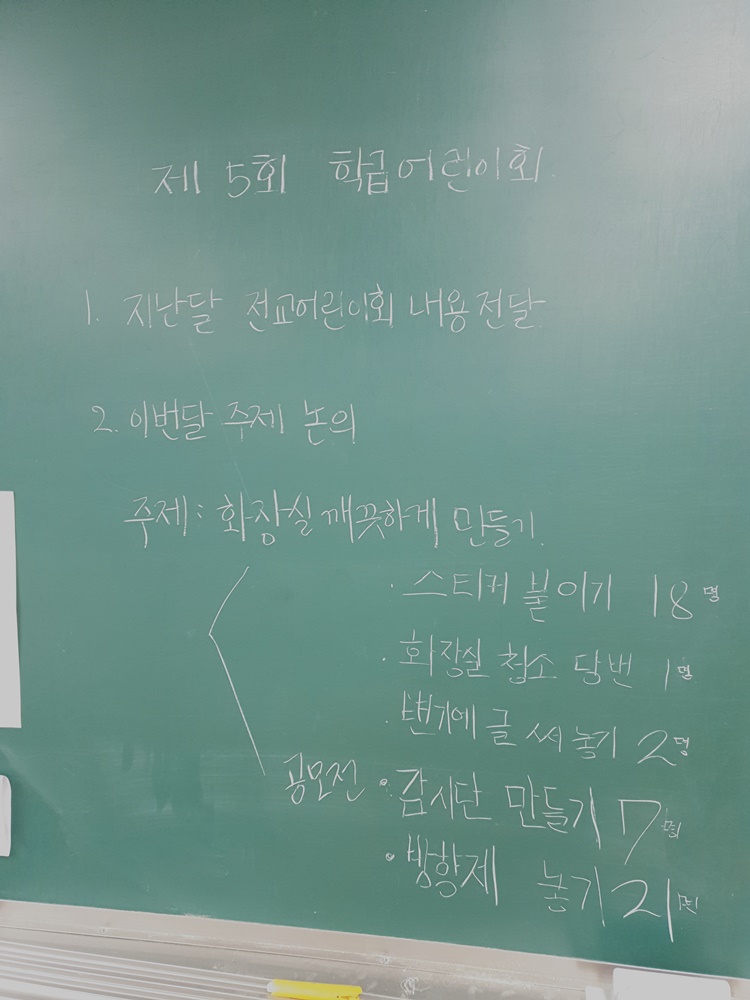 제 5회 학급어린이회
1. 지난달 전교어린이회 내용전달
2. 이번달 주제 논의
주제: 화장실 깨끗하게 만들기.
· 스티커 붙이기 18명
· 화장실 청소 당번 1명
· 변기에 글 써 놓기 2명
공모전 · 감시단 만들기 7명
· 방향제 놓기 21명